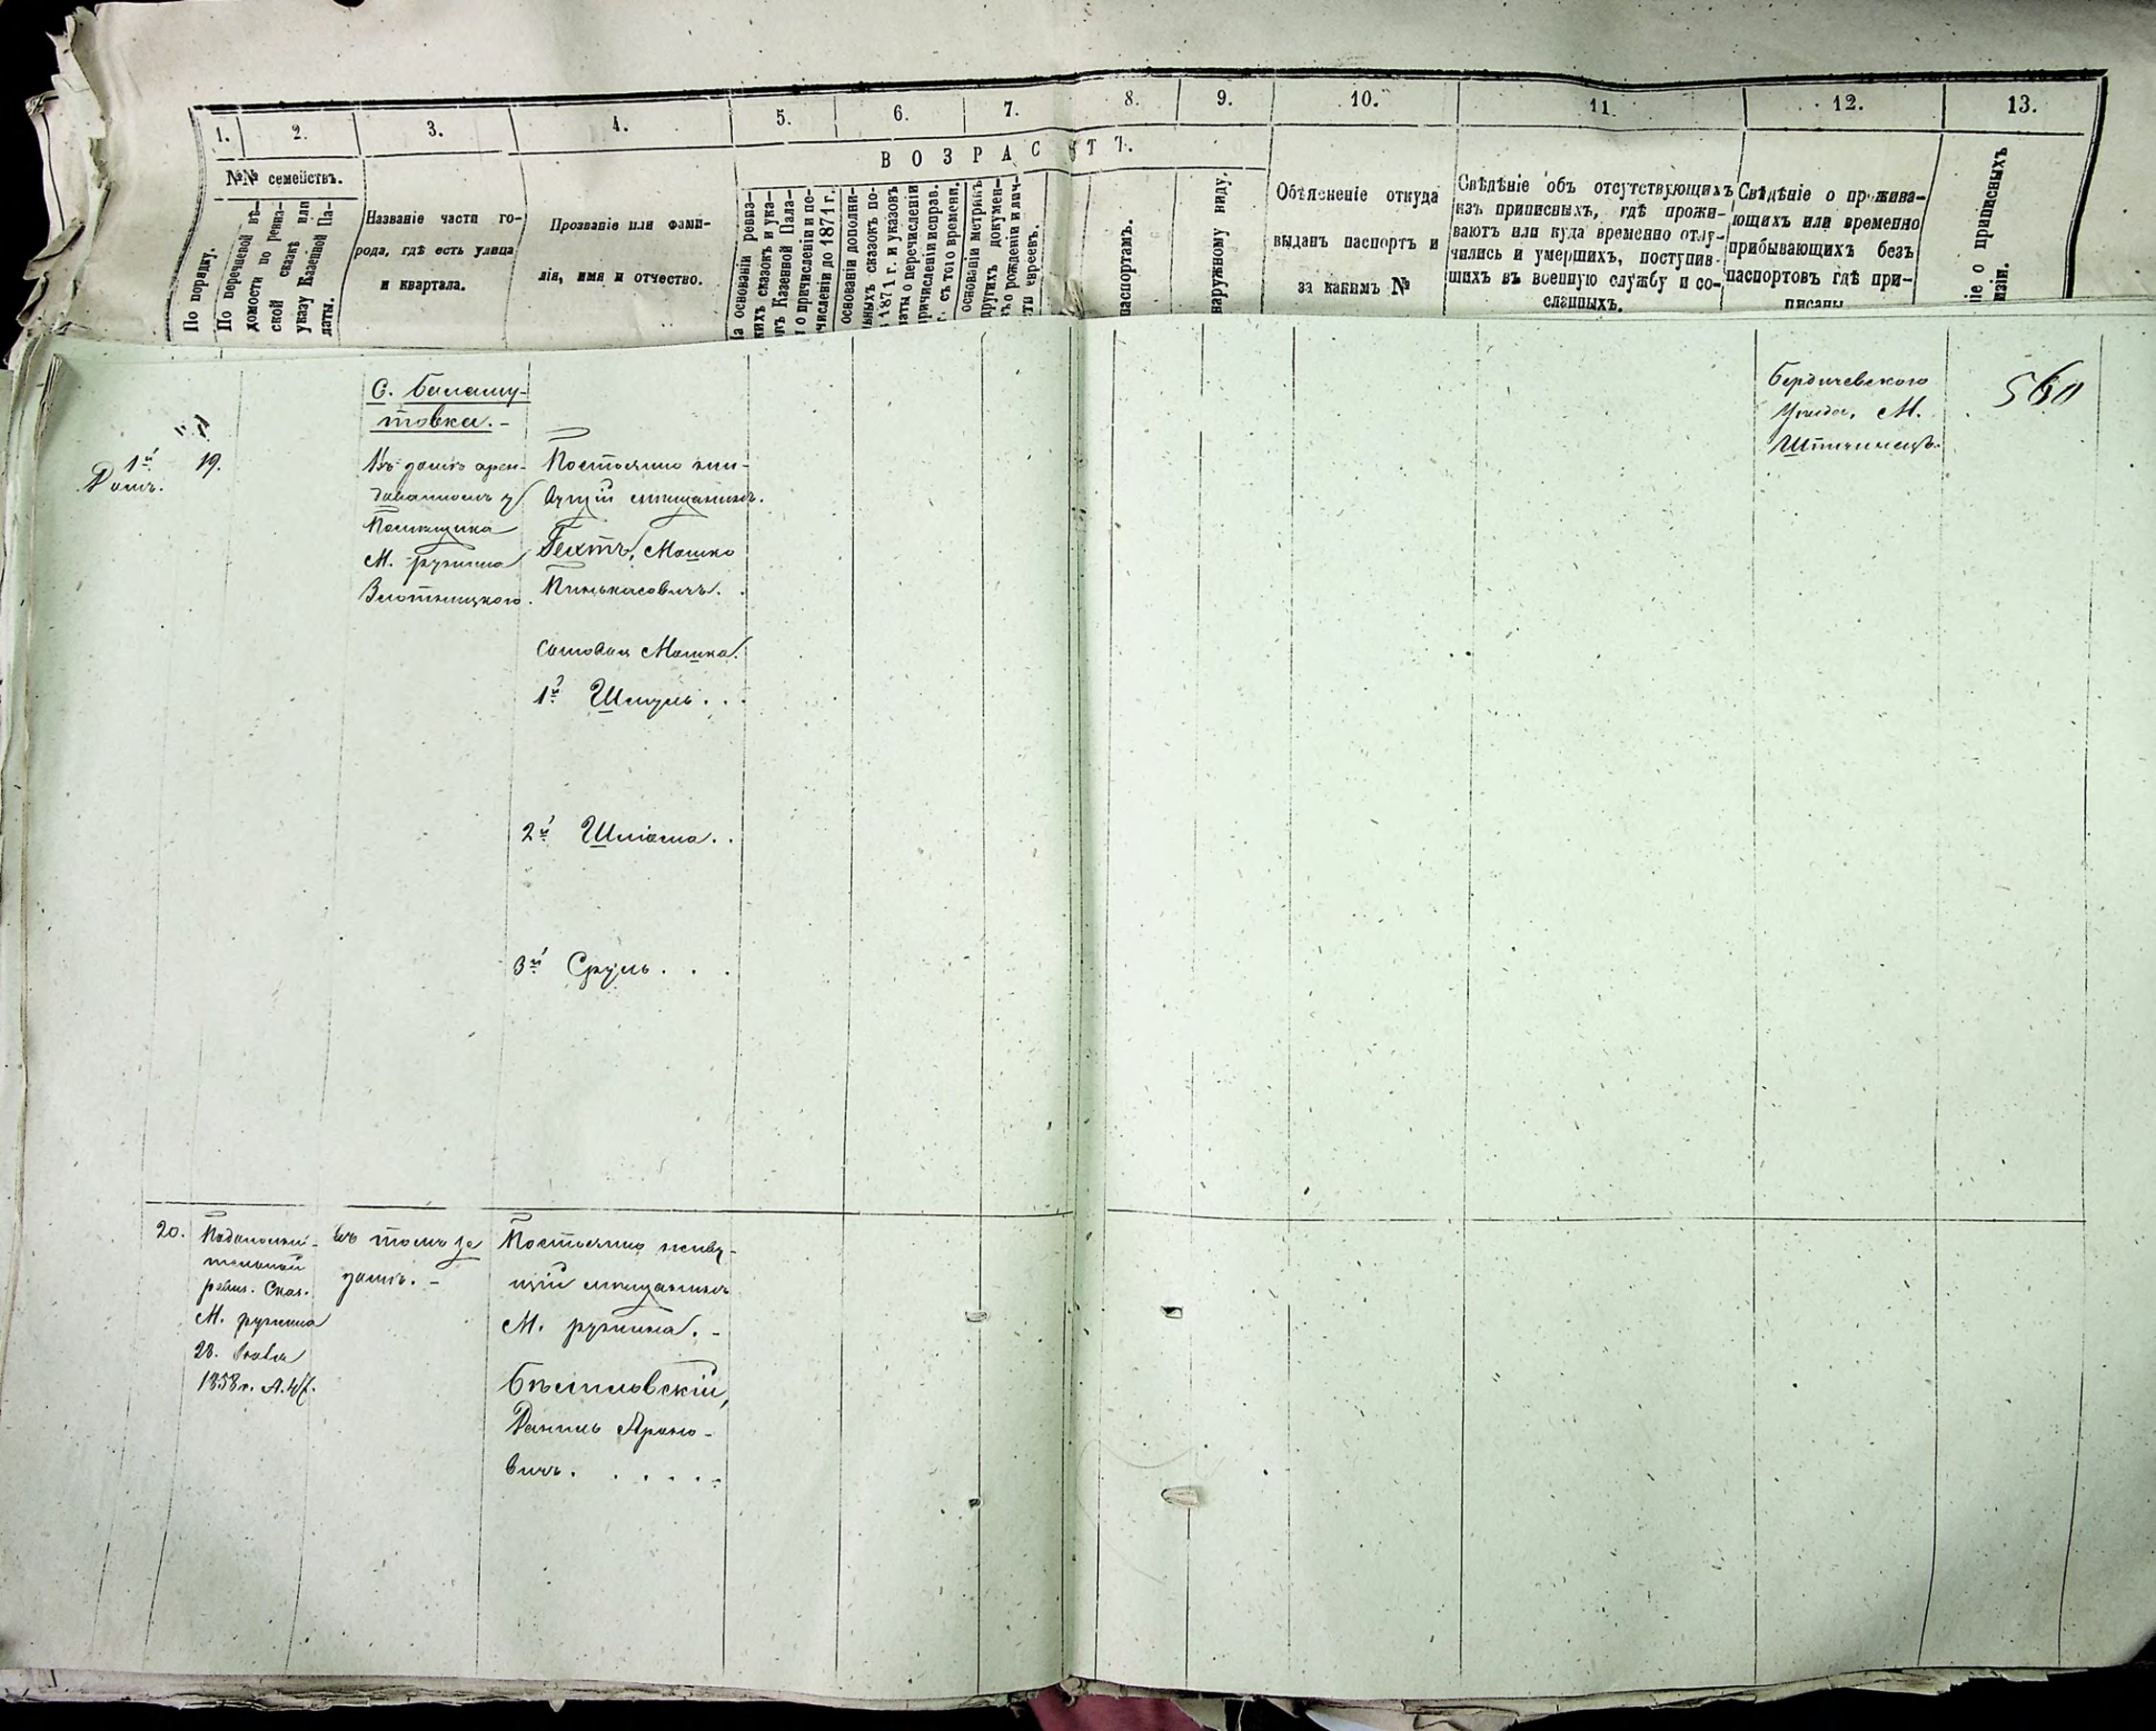 1. 2. 3. 4. 5. 6. 7. 8. 9. 10. 11. 12. 13.
ВОЗРАСТЪ.
№№ семействъ.
По порядку.
По перечневой вѣ-
домости по ревиз-
ской сказкѣ или
указу Казенной Па-
латы.
Названіе части го-
рода, гдѣ есть улица
и квартала.
Прозваніе или фами-
лія, имя и отчество.
На основаніи ревиз-
скихъ сказокъ и ука-
зовъ Казенной Пала-
о причисленіи и пе-
численіи до 1871 г.
основаніи дополни-
льныхъ сказокъ по-
1871 г. и указовъ
латы о перечисленіи
причисленіи исправ.
г. съ того времени.
основаніи метрикъ
другихъ докумен-
о рожденіи и лич-
ти евреевъ.
паспортамъ.
наружному виду.
Объясненіе откуда
выданъ паспортъ и
за какимъ №
Свѣдѣніе объ отсутствующихъ
изъ приписныхъ, гдѣ прожи-
ваютъ или куда временно отлу-
чились и умершихъ, поступив-
шихъ въ военную службу и со-
сланныхъ.
Свѣдѣніе о прожива-
ющихъ или временно
прибывающихъ безъ
паспортовъ гдѣ при-
писаны
ніе о приписныхъ
визіи.
С. Баламу-
товка.-
1й Домъ.
19.
Въ домѣ арен-
дованномъ у
Помѣщика
М. ружина
Злотницкого.
Постоянно жи-
вущій мѣщанинъ.
Гехтъ, Мошко
Пинькасовичъ.
Сыновья Мошка.
1й Шмуль . .
2й Шліома. .
3й Сруль . . .
Бердичевского
Уѣзда, М.
560
20.
По дополни-
тельной
ревиз. Сказ.
М. ружина
28.
1858 г. А. 47.
Въ томъ же
домѣ. -
Постоянно живу-
щій мѣщанинъ
М. ружина. -
Данилъ Ароно-
вичъ. . . . . .